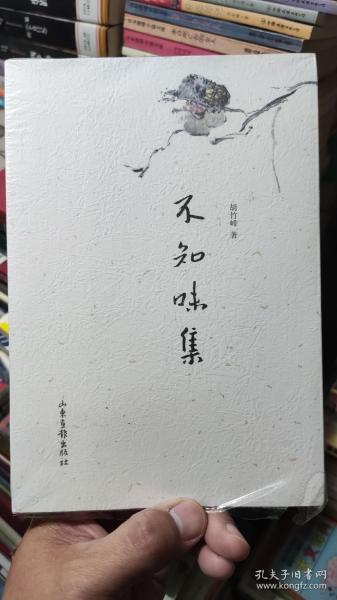 不知味集
胡竹峰 著
山东画报出版社
孔夫子旧书网
kongfz.com